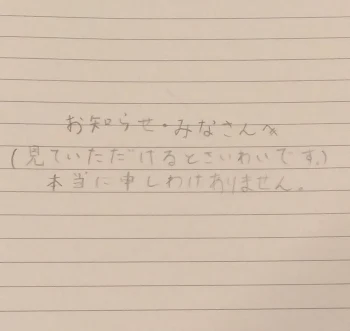 お知らせ・みなさんへ
(見ていただけるとさいわいです。)
本当に申しわけありません。